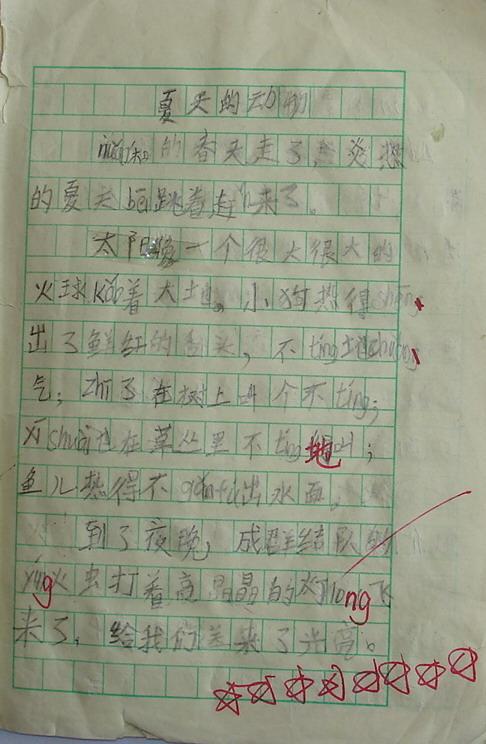 夏天的动物
的春天走了,炎热
的夏天bèng跳着赶来了。
太阳像一个很大很大的
火球kǎo着大地。小狗热得shēn
出了鲜红的舌头,不tíng地chuǎn
气;zhī了在树上叫个不tíng;
xī shuài也在草丛里不tíng地叫;
鱼儿热得不gǎn出水面。
到了夜晚,成群结队的
yíng火虫打着亮晶晶的灯lóng飞
来了,给我们送来了光亮。